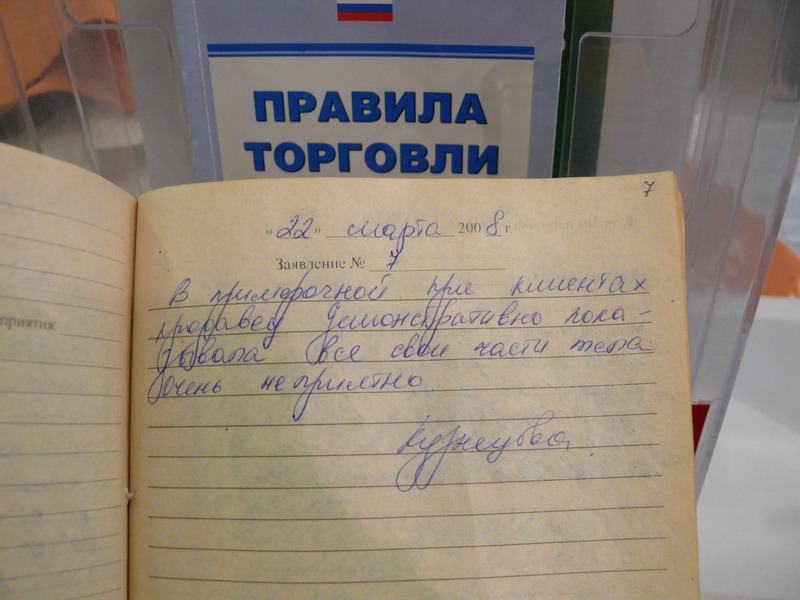 ПРАВИЛА
ТОРГОВЛИ
7
"22" марта 2008 г.
Заявление № 7
В примерочной при клиентах
продавец демонстративно пока-
зывала все свои части тела
очень не приятно.
Кузнецова
приятия